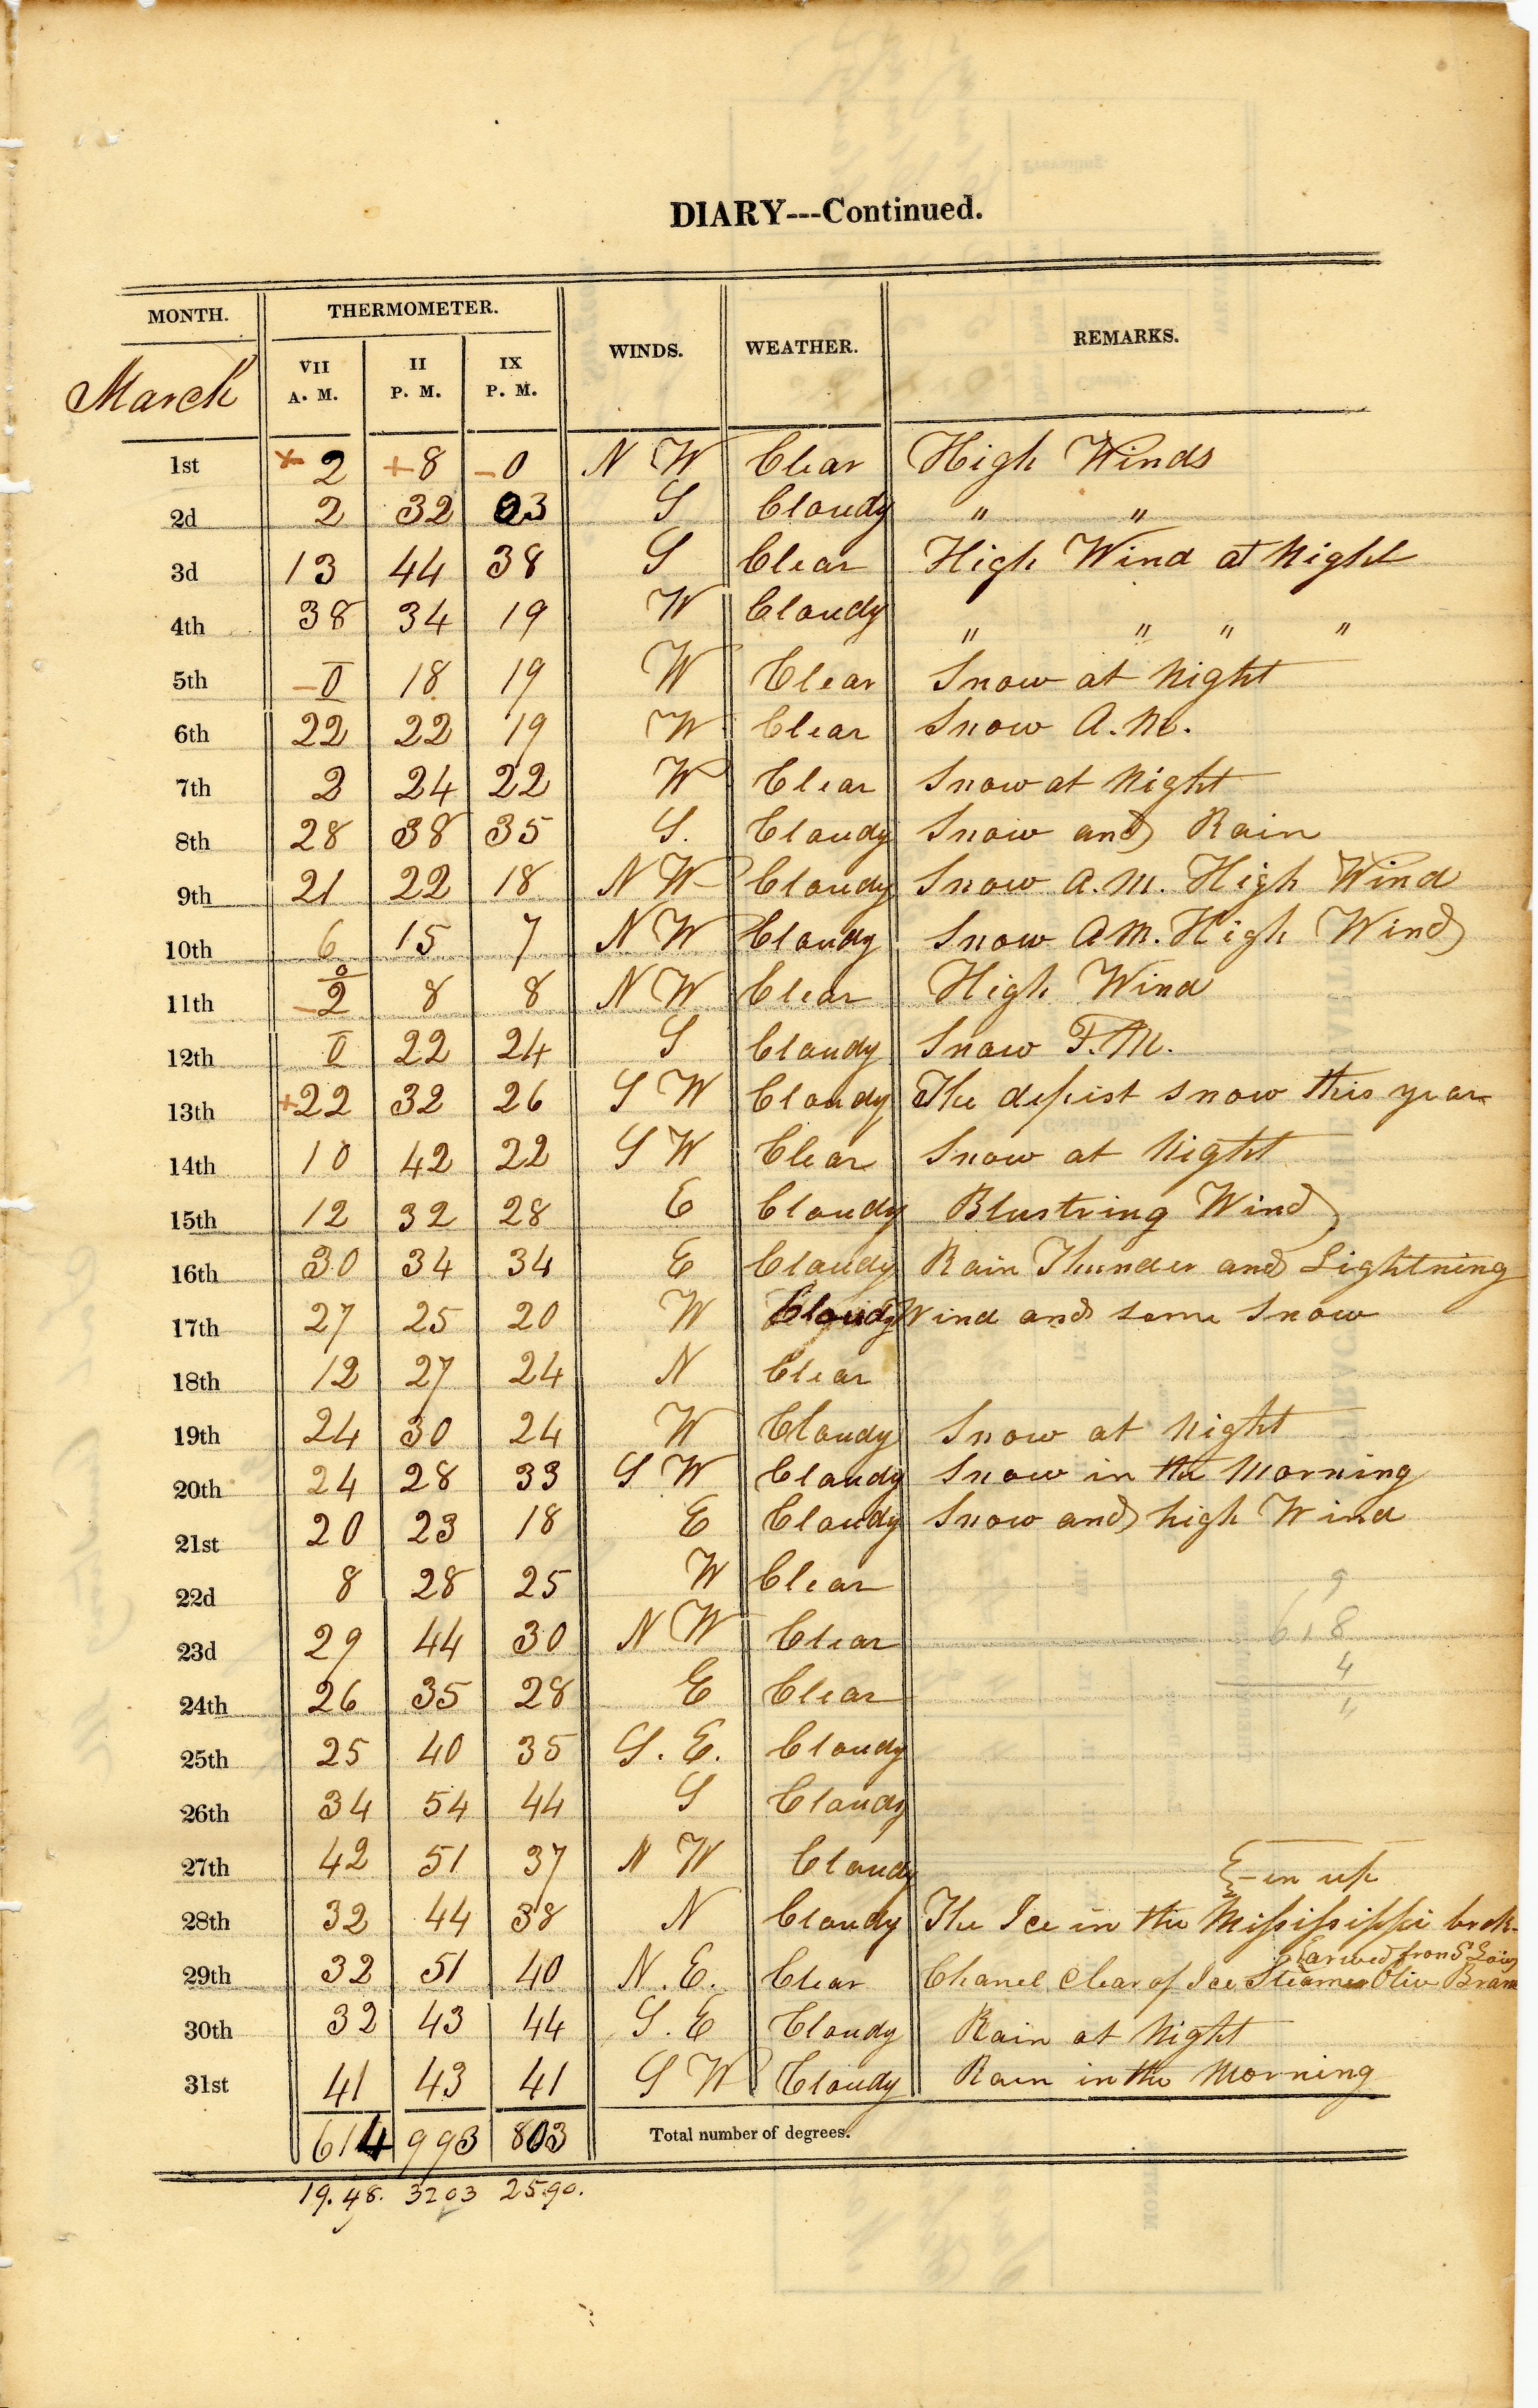 DIARY---Continued.
MONTH. THERMOMETER. WINDS. WEATHER. REMARKS.
March VII A. M. II P. M. IX P. M.
1st + 2 +8 -0 N W Clear High Winds
2d 2 32 23 S Cloudy " "
3d 13 44 38 S Clear High Wind at Night
4th 38 34 19 W Cloudy " " " "
5th -0 18 19 W Clear Snow at Night
6th 22 22 19 W Clear Snow A.M.
7th 2 24 22 W Clear Snow at Night
8th 28 38 35 S. Cloudy Snow and Rain
9th 21 22 18 N W Cloudy Snow A.M. High Wind
10th 6 15 7 N W Cloudy Snow AM. High Wind
11th -2 8 8 N W Clear High Wind
12th 0 22 24 S Cloudy Snow P.M.
13th +22 32 26 S W Cloudy The depist snow this year
14th 10 42 22 S W Clear Snow at Night
15th 12 32 28 E Cloudy Blustring Wind
16th 30 34 34 E Cloudy Rain Thunder and Lightning
17th 27 25 20 W Cloudy Wind and some Snow
18th 12 27 24 N Clear
19th 24 30 24 W Cloudy Snow at Night
20th 24 28 33 S W Cloudy Snow in the Morning
21st 20 23 18 E Cloudy Snow and high Wind
22d 8 28 25 W Clear
23d 29 44 30 N W Clear
24th 26 35 28 E Clear
25th 25 40 35 S. E. Cloudy
26th 34 54 44 S Cloudy
27th 42 51 37 N W Cloudy
en up
28th 32 44 38 N Cloudy The Ice in the Mississippi brok-
arived from S Louis
29th 32 51 40 N. E. Clear Chanel Clear of Ice Steamer Oliv Bran
30th 32 43 44 S. E Cloudy Rain at Night
31st 41 43 41 S W Cloudy Rain in the Morning
614 993 803 Total number of degrees.
19.48. 3203 25.90.